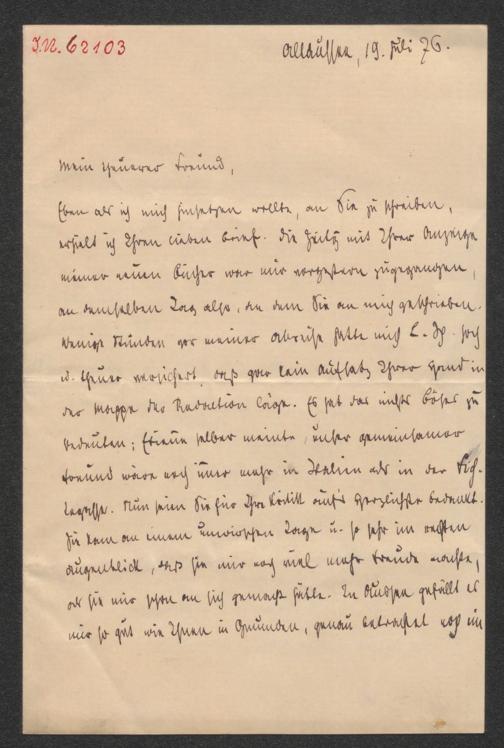 I.N. 62103
Altaussee, 19. Juli 76.
Mein theuerer Freund,
Eben als ich mich hinsetzen wollte, an Sie zu schreiben,
erhielt ich Ihren lieben Brief. Die Zeitg mit Ihrer Anzeige
meiner neuen Bücher war mir vorgestern zugegangen,
an demselben Tag also, an dem Sie an mich geschrieben.
Wenige Stunden vor meiner Abreise hatte mich L. Sp. hoch
u. theuer versichert, daß gar kein Aufsatz Ihrer Hand in
der Mappe der Redaction läge. Es hat das nichts Böses zu
bedeuten; selber meinte, unser gemeinsamer
Freund wäre noch immer mehr in Italien als in der
Nun seien Sie für Ihre Kritik auf's Herzlichste bedankt.
Sie kam an einem Tage u. so sehr im rechten
Augenblick, daß sie mir noch viel mehr Freude machte,
als sie mir schon an sich gemacht hätte. In Aussee gefällt es
mir so gut wie Ihnen in Gmunden, genau betrachtet noch um